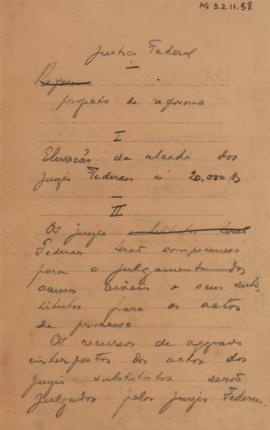 AG 3.2.11.58
Justiça Federal
Reforma
projecto de reforma
I
Elevação da alçada dos
Juizes Federaes á 20.000$
II
Os juizes substitutos
Federaes terão competencia
para o julgamento dos
causas civeis e seus subs-
titutos para os actos
de processo.
Os recursos de aggravo
interpostos dos actos dos
Juizes substitutos serão
Julgados pelos Juizes Federaes